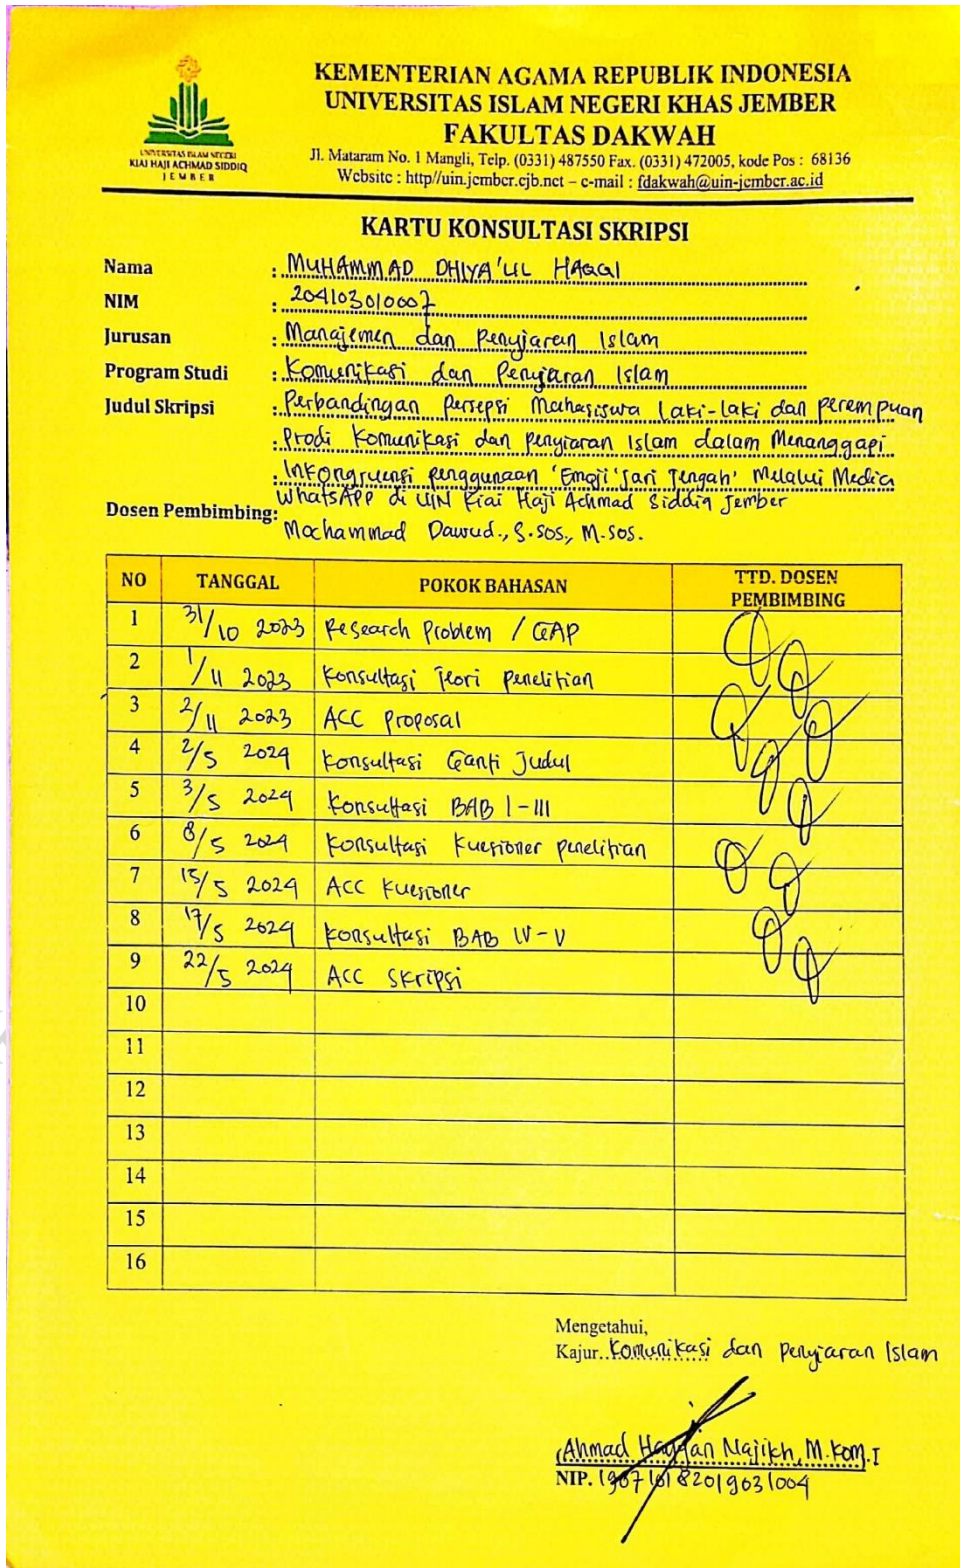 KEMENTERIAN AGAMA REPUBLIK INDONESIA
UNIVERSITAS ISLAM NEGERI KHAS JEMBER
FAKULTAS DAKWAH
Jl. Mataram No. 1 Mangli, Telp. (0331) 487550 Fax. (0331) 472005, kode Pos : 68136
Website : http//uin.jember.cjb.net – e-mail : fdakwah@uin-jember.ac.id
UNIVERSITAS ISLAM NEGERI
KIAI HAJI ACHMAD SIDDIQ
JEMBER
KARTU KONSULTASI SKRIPSI
Nama : MUHAMMAD DHIYA'UL HAQQI
NIM : 204103010007
Jurusan : Manajemen dan Penyiaran Islam
Program Studi : Komunikasi dan Penyiaran Islam
Judul Skripsi : Perbandingan Persepsi Mahasiswa Laki-laki dan perempuan
: Prodi Komunikasi dan penyiaran Islam dalam Menanggapi
: Inkongruensi penggunaan 'Emoji 'Jari Tengah' Melalui Media
WhatsAPP di UIN Kiai Haji Achmad Siddiq Jember
Dosen Pembimbing:
Mochammad Dawud., S.sos., M.sos.
NO TANGGAL POKOK BAHASAN TTD. DOSEN PEMBIMBING
1 31/10 2023 Research Problem / GAP
2 1/11 2023 Konsultasi Teori penelitian
3 2/11 2023 ACC proposal
4 2/5 2024 Konsultasi Ganti Judul
5 3/5 2024 Konsultasi BAB I-III
6 8/5 2024 Konsultasi Kuesioner penelitian
7 15/5 2024 ACC Kuesioner
8 17/5 2024 Konsultasi BAB IV-V
9 22/5 2024 ACC Skripsi
10
11
12
13
14
15
16
Mengetahui,
Kajur. Komunikasi dan penyiaran Islam
(Ahmad Hayyan Najikh, M.Kom.I
NIP.